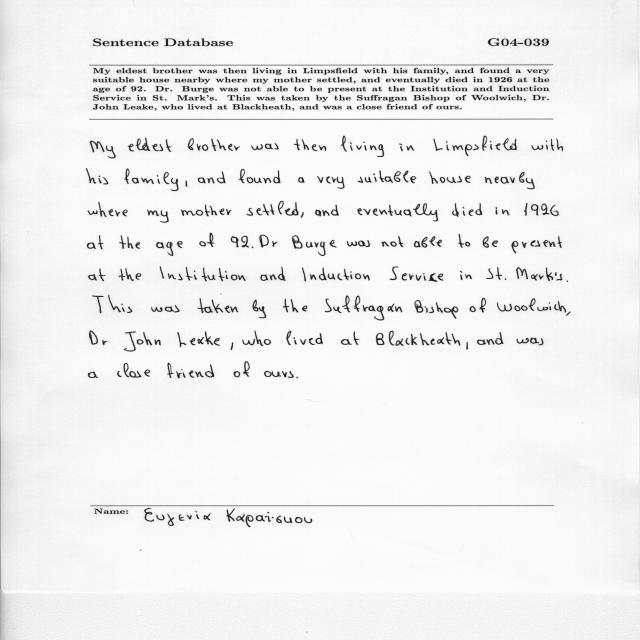 Sentence Database G04-039
My eldest brother was then living in Limpsfield with his family, and found a very
suitable house nearby where my mother settled, and eventually died in 1926 at the
age of 92. Dr. Burge was not able to be present at the Institution and Induction
Service in St. Mark's. This was taken by the Suffragan Bishop of Woolwich, Dr.
John Leake, who lived at Blackheath, and was a close friend of ours.
My eldest brother was then living in Limpsfield with
his family, and found a very suitable house nearby
where my mother settled, and eventually died in 1926
at the age of 92. Dr Burge was not able to be present
at the Institution and Induction Service in St. Mark's.
This was taken by the Suffragan Bishop of Woolwich,
Dr John Leake, who lived at Blackheath, and was
a close friend of ours.
Name: Ευγενία Καραΐσκου